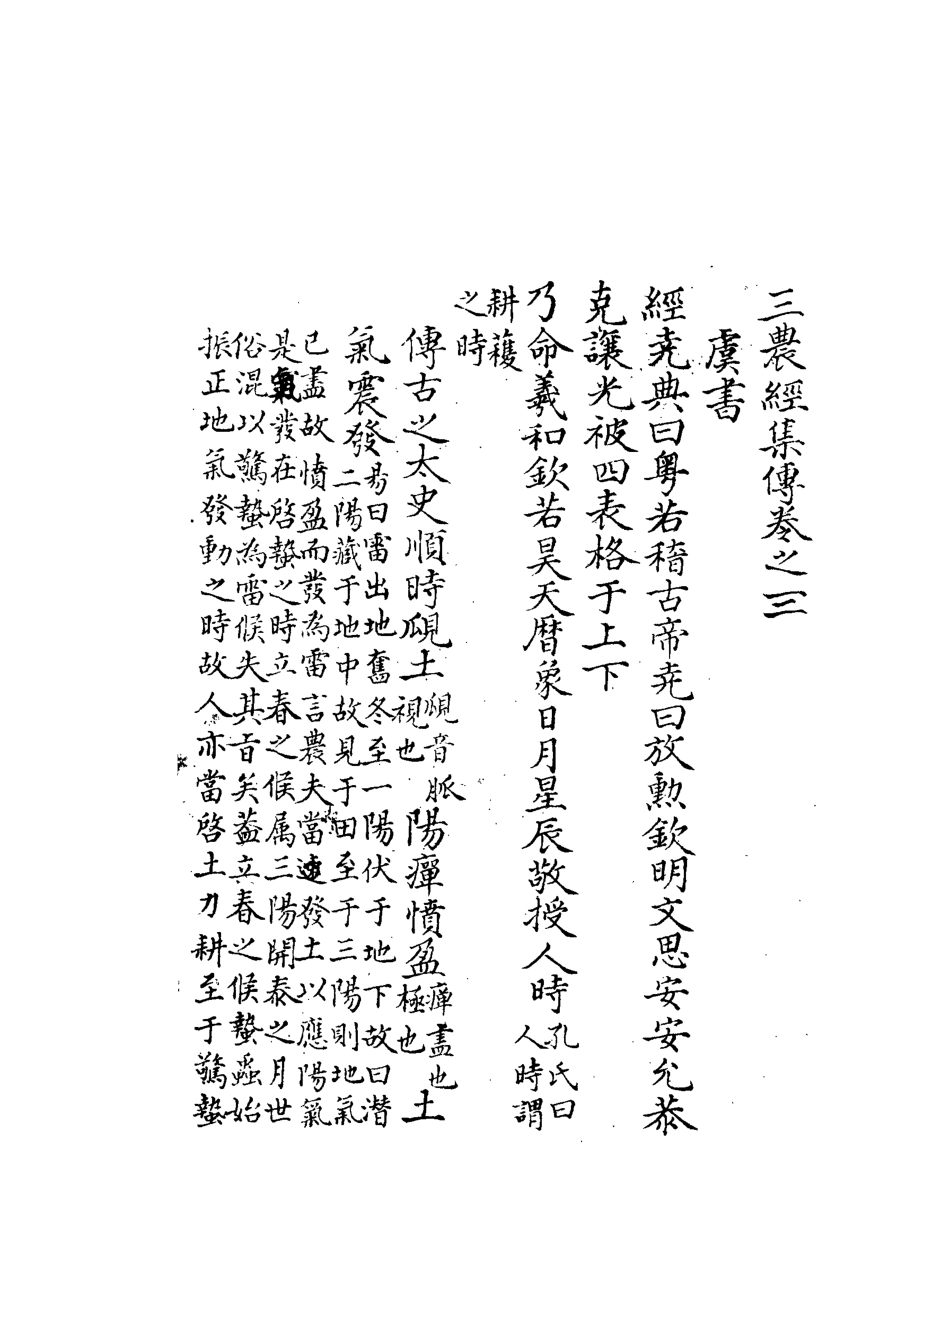 三農經集傳卷之三
虞書
經堯典曰粵若稽古帝堯曰放勲欽明文思安安允恭
克讓光被四表格于上下
乃命羲和欽若昊天曆象日月星辰敬授人時孔氏曰
人時謂
耕穫
之時
傳古之太史順時覛土覛音脈
視也
陽癉憤盈癉盡也
極也
土
氣震發易曰雷出地奮冬至一陽伏于地下故曰潜
二陽藏于地中故見于田至于三陽則地氣
已盡故憤盈而發為雷言農夫當速發土以應陽氣
是氣發在啓蟄之時立春之候属三陽開泰之月世
俗混以驚蟄為雷候失其旨矣葢立春之候蟄蟲始
振正地氣發動之時故人亦當啓土力耕至于驚蟄